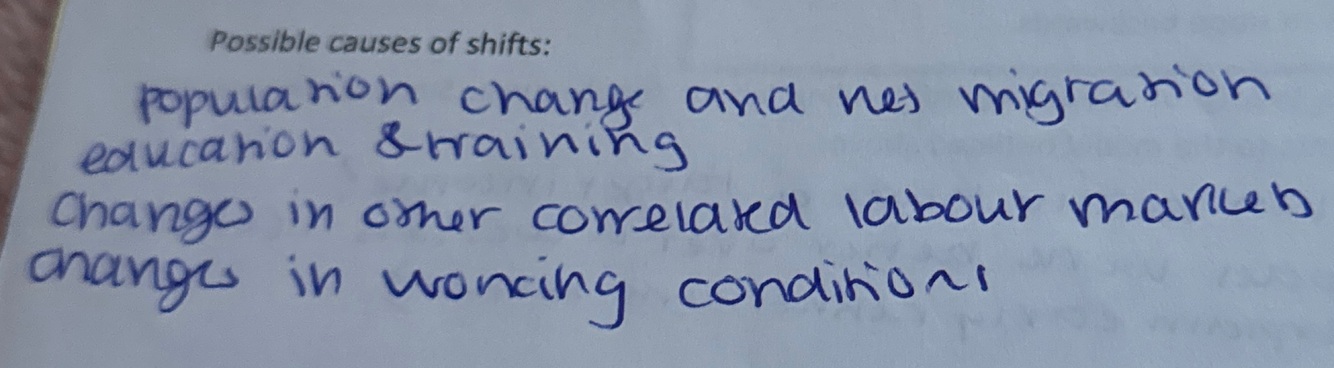 Possible causes of shifts:
population change and net migration
education & training
changes in other correlated labour markets
changes in working conditions